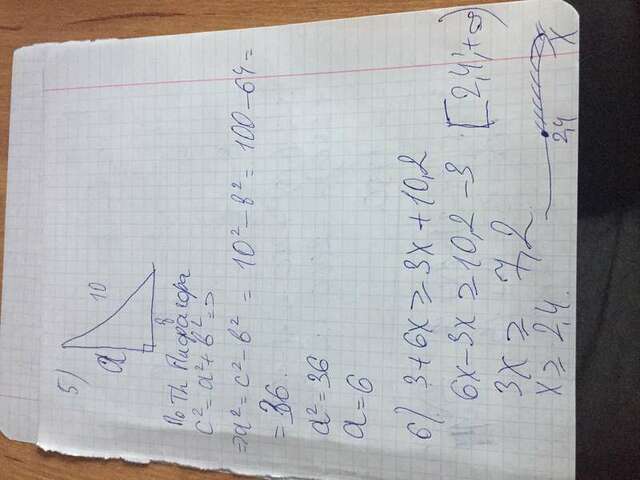 5)
a
10
8
По Th Пифагора
c² = a² + b² =>
=> a² = c² - b² = 10² - 8² = 100 - 64 =
= 36.
a² = 36
a = 6
6) 3 + 6x ≥ 3x + 10,2
6x - 3x ≥ 10,2 - 3
[2,4; +∞)
3x ≥ 7,2
x ≥ 2,4.
2,4
x